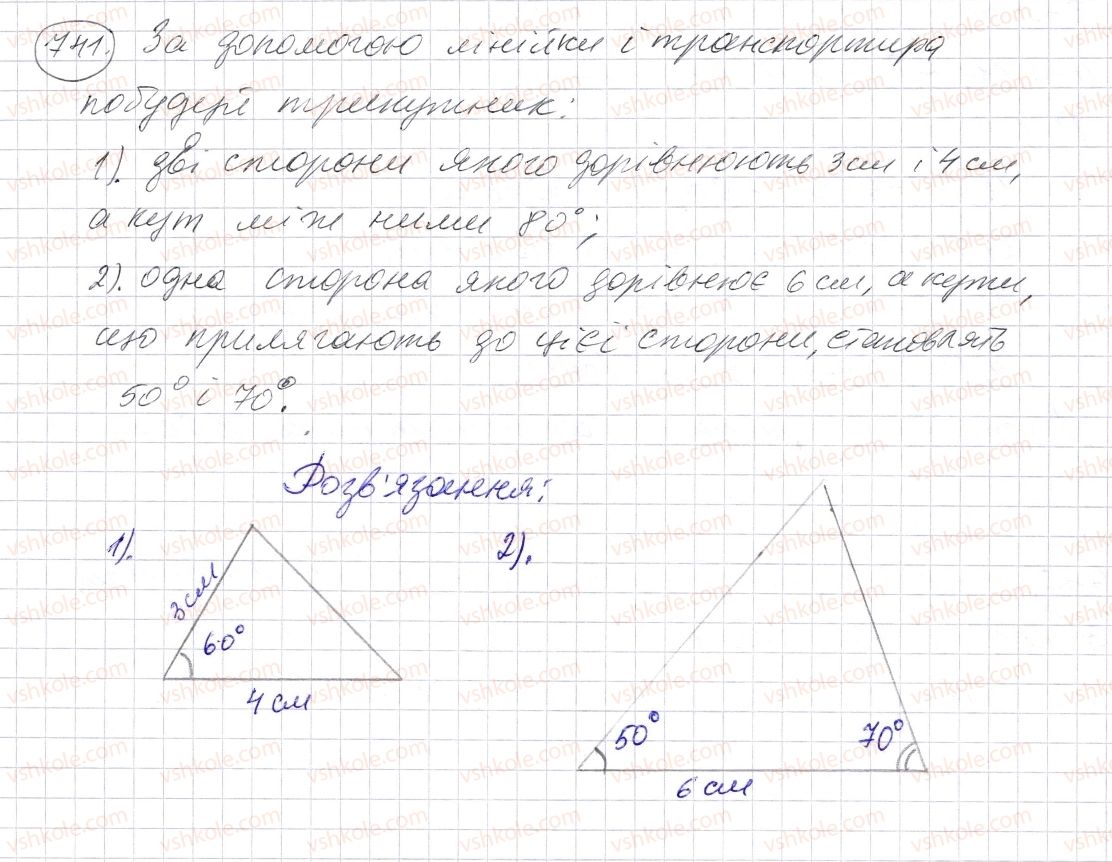 741. За допомогою лінійки і транспортира
побудуй трикутник:
1). дві сторони якого дорівнюють 3 см і 4 см,
а кут між ними 80°;
2). одна сторона якого дорівнює 6 см, а кути,
що прилягають до цієї сторони, становлять
50° і 70°.
Розв'язання:
1).
3 см
60°
4 см
2).
50°
70°
6 см
vshkole.com